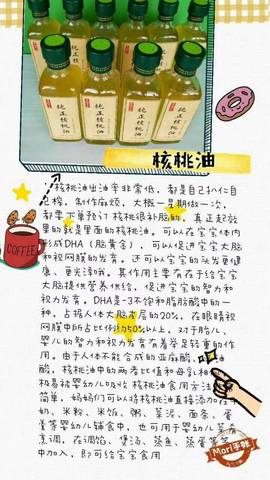 纯正核桃油
纯正核桃油
纯正核桃油
纯正核桃油
核桃油
核桃油出油率非常低，都是自己扒仁自
己榨，制作麻烦，大概一星期做一次，
都要下单预订 核桃眼补脑的，真正起效
果的就是里面的核桃油，可以在宝宝体内
形成DHA（脑黄金），可以促进宝宝大脑
和视网膜的发育，还可以让宝宝的头发更健
康、更光泽哦。其作用主要有在于给宝宝
大脑提供营养供给，促进宝宝的智力和
视力发育，DHA是一3不饱和脂肪酸中的一
种，占据人体大脑皮层的20%，在眼睛视
网膜中所占比例约50%以上，对于胎儿、
婴儿的智力和视力发育有着举足轻重的作
用。由于人体不能合成的亚麻酸、
油酸，核桃油中的两者比值和母乳相
极易被婴幼儿吸收 核桃油食用方法
简单，妈妈们可以将核桃油直接添加在牛
奶、米粉、米饭、粥、菜泥、面条、蛋
羹等婴幼儿辅食中，也可用于婴幼儿菜肴
烹调，在调馅、煲汤、蒸鱼、蒸蛋羹等
中加入，即可给宝宝食用
COFFEE
Mori手帐